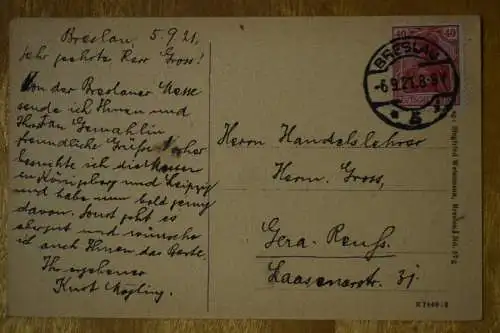 Breslau, 5.9.21.
Sehr geehrter Herr Gross!
Von der Breslauer Messe
sende ich Ihnen und
Ihrer Frau Gemahlin
freundliche Grüße. Vorher
besuchte ich die Messen
in Königsberg und Leipzig
und habe nun bald genug
davon. Sonst geht es
sehr gut und wünsche
ich auch Ihnen das Beste.
Ihr ergebener
Kurt
40 40
BRESLAU
-6.9.21.8-9V
* 5
Herrn Handelslehrer
Herm. Gross,
Gera-Reuß.
Laasenerstr. 31